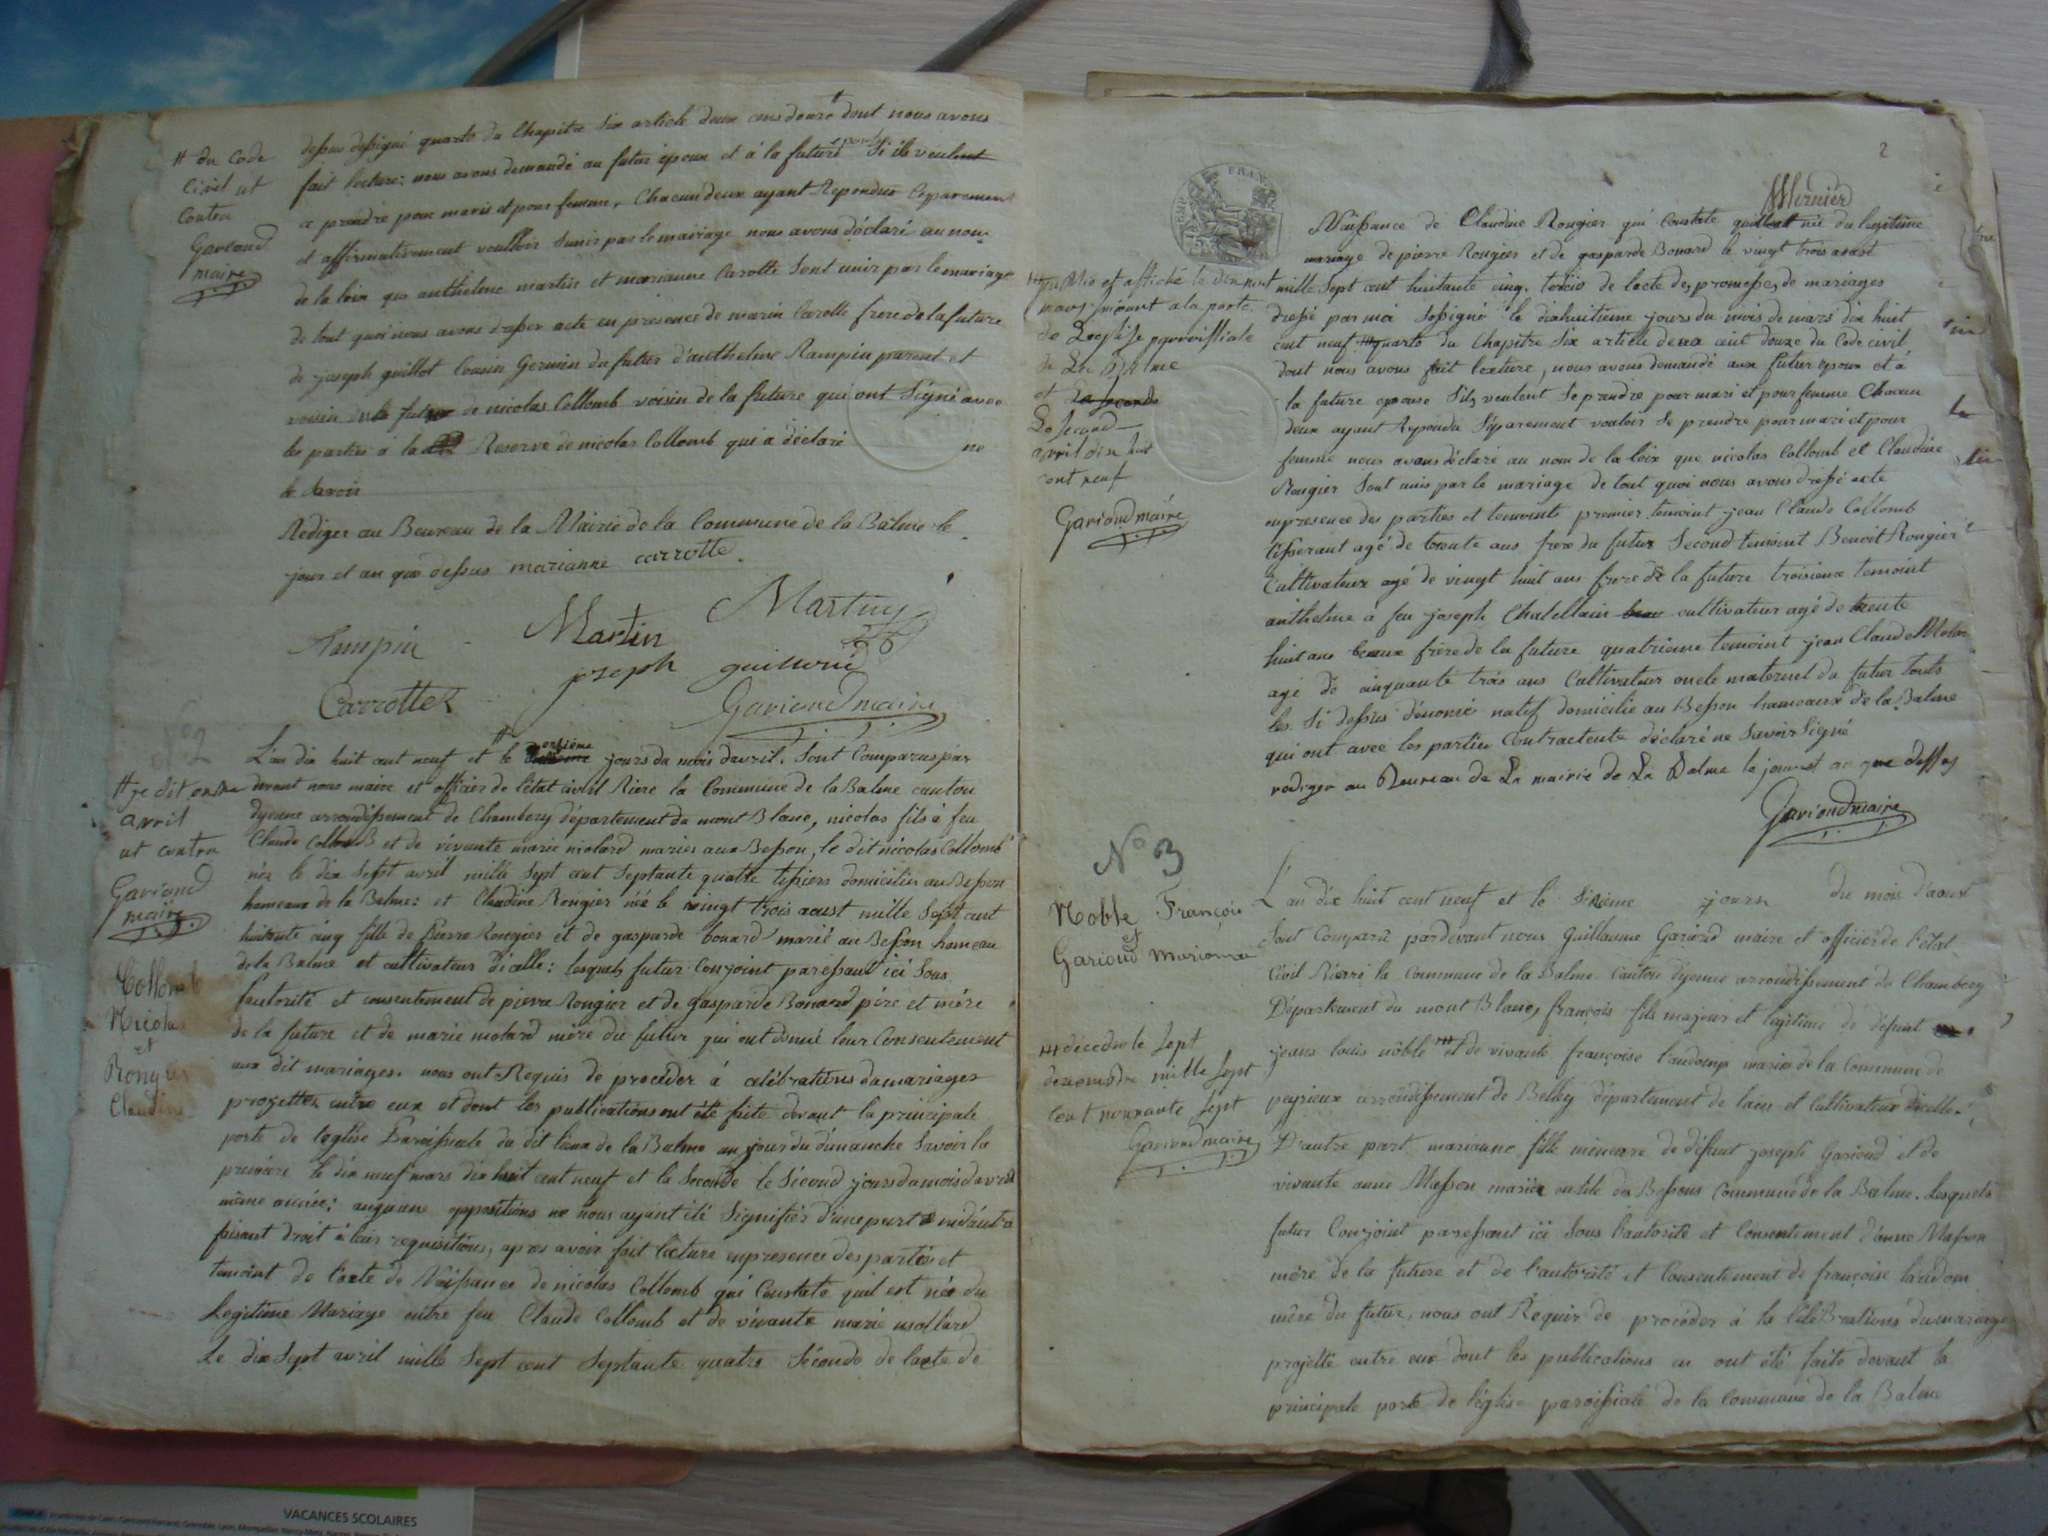 # du Code
Civil ut
Contra
Gariond
maire
dessus dessigné quarto du Chapitre Six article deux cens douze dont nous avons
fait lecture: nous avons demandé au futur époux et à la future épouse Si ils veulent
a prendre pour maris et pour femme, Chacun deux ayant Repondus Separement
et affirmativement voulloir sunir par le mariage nous avons déclaré au nom
de la loix que anthelme martin et marianne Carotte Sont unir par le mariage
de tout quoi nous avons dresser acte en presence de marin Carotte frere de la future
de joseph guillot Cousin Germin du futur d'anthelme Rampin parent et
voisin de nicolas Collomb voisin de la future qui ont Signé avec
les parties à la Reserve de nicolas Collomb qui a déclaré ne
le Savoir
Rediger au Beureau de la Mairie de la Commune de la Balme le
jour et an que dessus marianne carrotte.
Rampin Martin Martin
joseph guilloud
Carrotte Gariond maire
N° 2
L'an dix huit cent neuf et le onzième jours du mois davril. Sont Comparus par
# je dit onze
avril
ut contra
Gariond
maire
devant nous maire et officier de l'état civil Riere la Commune de la Balme canton
dyenne arrondissement de Chambery département du mont Blanc, nicolas fils à feu
Claude Collomb et de vivante marie molard mariés aux Besson, le dit nicolas Collomb
née le dix Sept avril mille Sept cent Septante quatre tissiers domiciliés au Besson
hameaux de la Balme: et Claudine Rongier née le vingt trois aoust mille Sept cent
huitante cinq fille de Pierre Rongier et de gasparde bonard marié au Besson hameau
de la Balme et cultivateur dicelle: lesquels futur Conjoint paressant ici Sous
Collomb
Nicolas
et
Rongier
Claudine
l'autorité et consentement de pierre Rongier et de gasparde Bonard père et mère
de la future et de marie molard mère du futur qui ont donné leur Consentement
aux dit mariages. nous ont Requis de proceder à celébrations du mariages
progetter entre eux et dont les publications ont été faite devant la principale
porte de leglise Paroissiale du dit lieux de la Balme un jour du dimanche Savoir la
premiere le dix neuf mars dix huit cent neuf et la Seconde le Sécond jours du mois davril
même année; auquune oppositions ne nous ayant été Signifiés
faisant droit à leur requisitions, apres avoir fait lecture en presence des parties et
temoint de l'acte de Naissance de nicolas Collomb qui Constate quil est née du
Legitime Mariage entre feu Claude Collomb et de vivante marie mollard
Le dix Sept avril mille Sept cent Septante quatre Sécondo de lacte de
2
Mernier
Naissance de Claudine Rongier qui Constate née du legitime
mariage de pierre Rongier et de gasparde Bonard le vingt trois aoust
mille Sept cent huitante cinq. tercio de lacte de promesse de mariages
dressé par moi Sossigné le dixhuitième jours du mois de mars dix huit
cent neuf quarto du Chapitre Six article deux cent douze du Code civil
dont nous avons fait lecture, nous avons demandé aux futur epoux et à
la future epouse Silz veulent Se prandre pour mari et pour femme Chacun
deux ayant Repondu Séparement vouloir Se prendre pour mari et pour
femme nous avons déclaré au nom de la loix que nicolas Collomb et Claudine
Rongier Sont unis par le mariage de tout quoi nous avons dressé acte
en presence des parties et temoints premier temoint jean Claude Collomb
tisserant agé de trente ans frere du futur Second temoint Benoit Rongier
Cultivateur agé de vingt huit ans frere de la future troisieme temoint
anthelme à feu joseph Chatellain cultivateur agé de trente
huit ans beaux frère de la future quatrieme temoint jean Claude Molar
agé de cinquante trois ans Cultivateur oncle maternel du futur touts
les Si dessus dénomé natif domicilié au Besson hameaux de la Balme
qui ont avec les parties Contractente déclaré ne Savoir Signé
rediger au Beureau de La mairie de La Balme le jour et an que dessus
Gariond maire
publié et affiché le dix neuf
mars à la porte
de Leglise parroissiale
de La Balme
et
Le Second
avril dix huit
cent neuf
Gariond maire
N° 3
Noble François
et
Gariond Marianne
L'an dix huit cent neuf et le Sixieme jours du mois daoust
Sont Comparû pardevant nous Guillaume Gariond maire et officier de létat
Civil Rierre la Commune de la Balme Canton dyenne arrondissement de Chambery
Département du mont Blanc, françois fils majeur et legitime de défunt
jeans louis noble et de vivante françoise Landomp mariés de la Commune de
peyrieux arrondissement de Belley département de lain et Cultivateur dicelle.
décédé le Sept
décembre mille Sept
Cent nonnante Sept
Gariond maire
D'autre part marianne fille mineure de défunt joseph Gariond et de
vivante anne Masson mariée Bessons Commune de la Balme. Lesquels
futur Conjoint paressant ici Sous l'autorité et Consentement d'anne Masson
mère de la future et de l'autorité et Consentement de françoise landom
mère du futur, nous ont Requir de procéder à la Célébrations du mariage
projetté entre eux dont les publications en ont été faite devant la
principale porte de léglise paroissiale de la Commune de la Balme
VACANCES SCOLAIRES